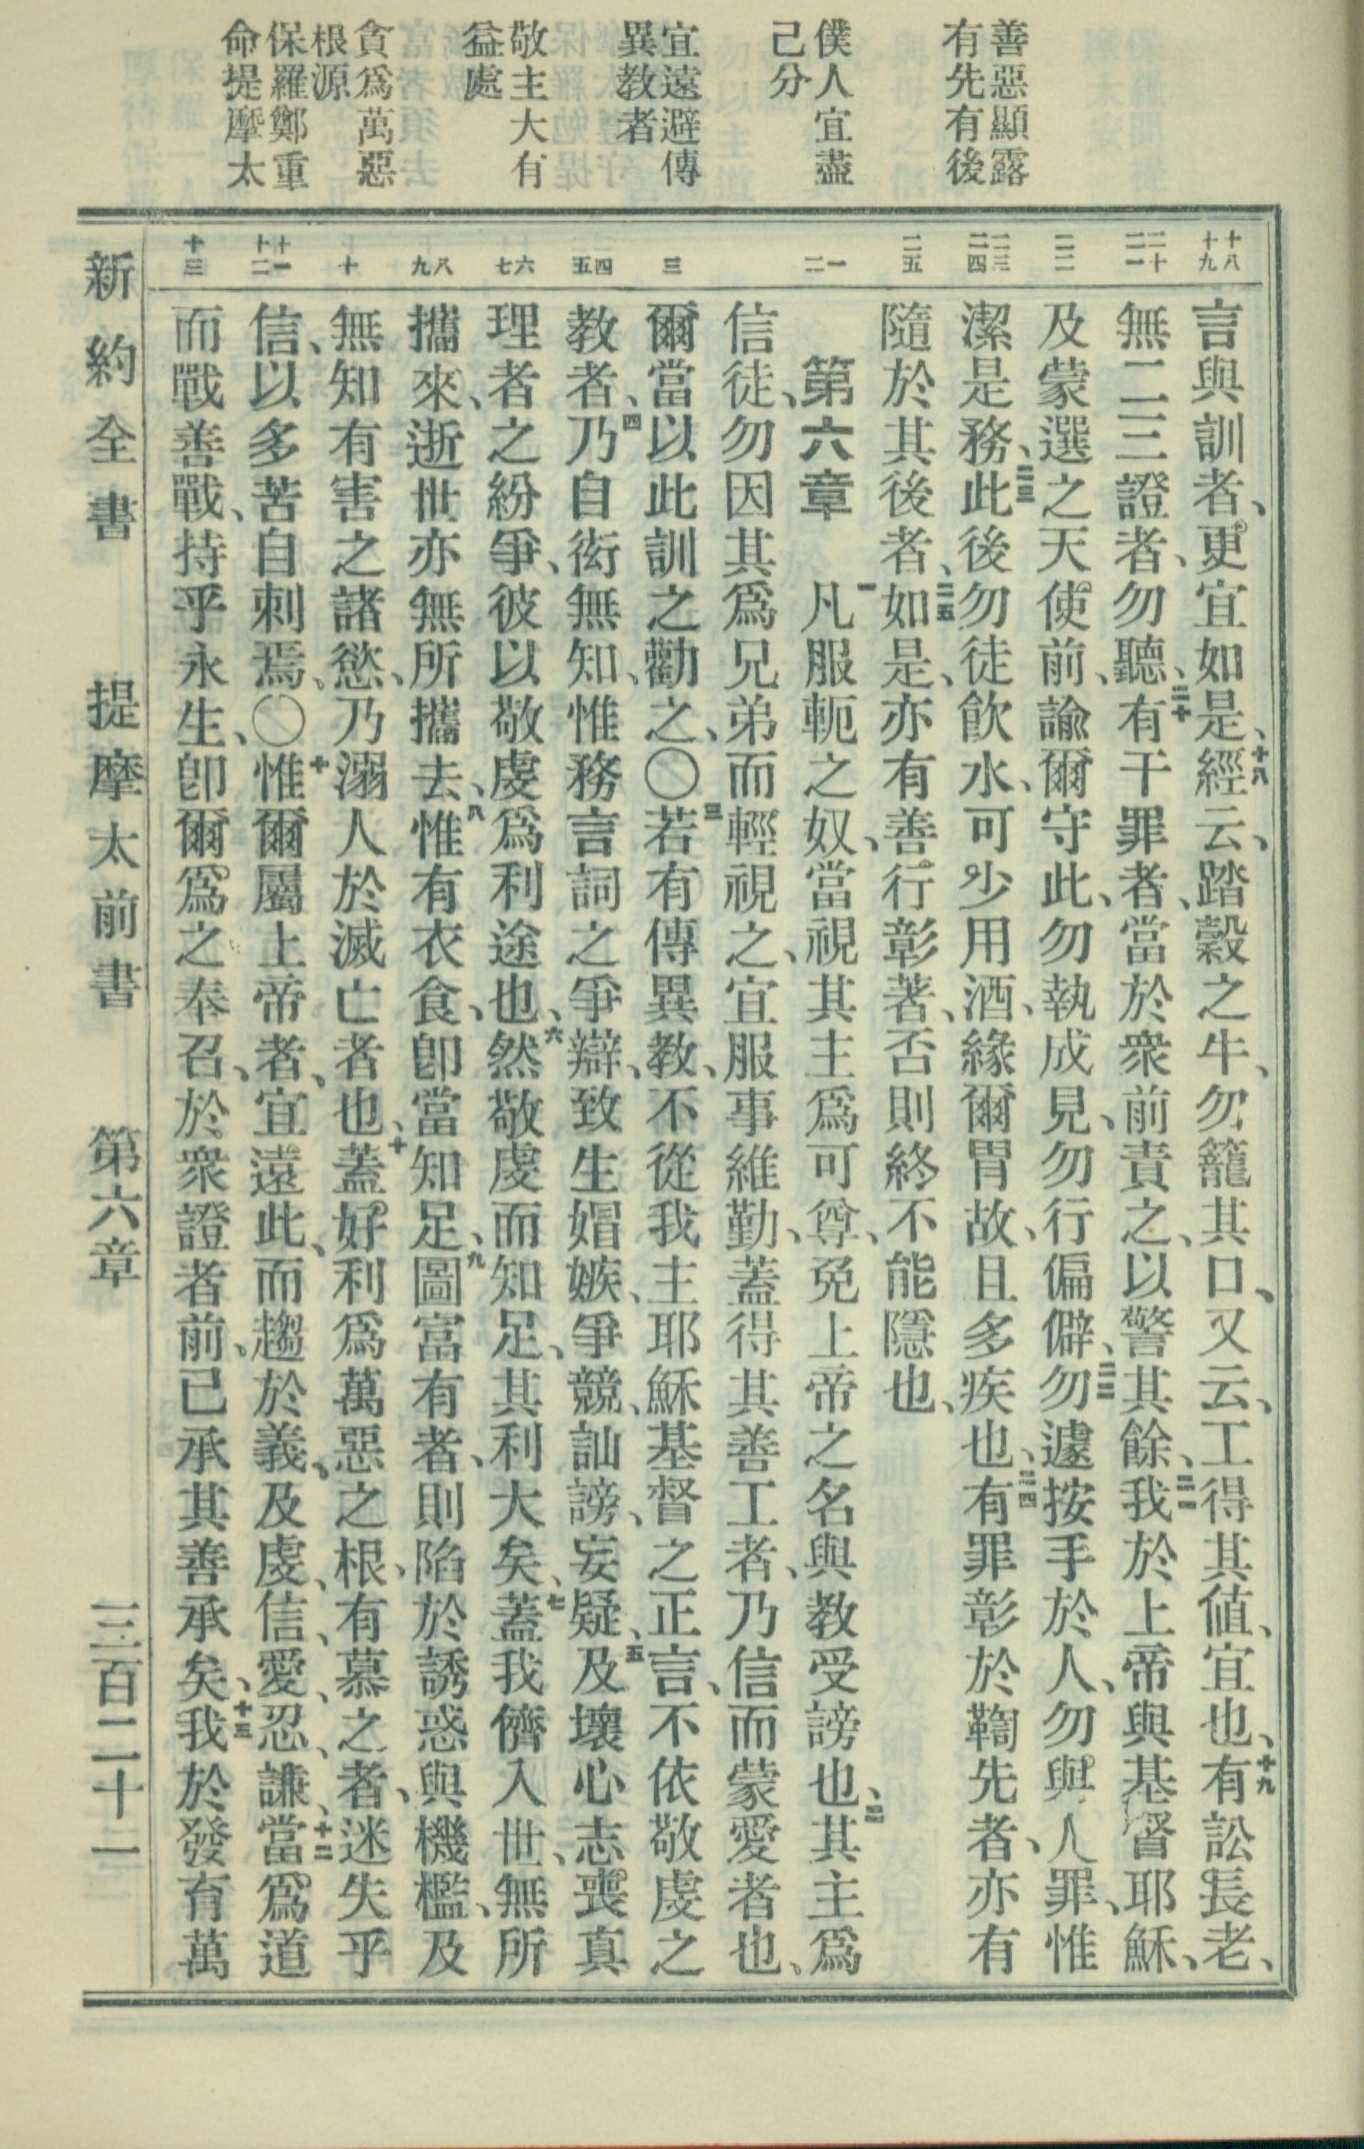 善惡顯露
有先有後
僕人宜盡
己分
宜遠避傳
異教者
敬主大有
益處
貪爲萬惡
根源
保羅鄭重
命提摩太
十八
十九
二十
二一
二二
二三
二四
二五
一
二
三
四
五
六
七
八
九
十
十一
十二
十三
言與訓者、更宜如是、十八經云、踏穀之牛、勿籠其口、又云、工得其値、宜也、十九有訟長老、
無二三證者、勿聽、二十有干罪者、當於衆前責之、以警其餘、二一我於上帝與基督耶穌、
及蒙選之天使前、諭爾守此、勿執成見、勿行偏僻、二二勿遽按手於人、勿與人罪、惟
潔是務、二三此後勿徒飮水、可少用酒、緣爾胃故、且多疾也、二四有罪彰於鞫先者、亦有
隨於其後者、二五如是、亦有善行彰著、否則終不能隱也、
第六章 一凡服軛之奴、當視其主爲可尊、免上帝之名與教受謗也、二其主爲
信徒、勿因其爲兄弟而輕視之、宜服事維勤、蓋得其善工者、乃信而蒙愛者也、
爾當以此訓之勸之、〇三若有傳異教、不從我主耶穌基督之正言、不依敬虔之
教者、四乃自衒無知、惟務言詞之爭辯、致生媢嫉、爭競、訕謗、妄疑、五及壞心志、喪眞
理者之紛爭、彼以敬虔爲利途也、六然敬虔而知足、其利大矣、七蓋我儕入世、無所
攜來、逝世亦無所攜去、八惟有衣食、卽當知足、九圖富有者、則陷於誘惑與機檻、及
無知有害之諸慾、乃溺人於滅亡者也、十蓋好利爲萬惡之根、有慕之者、迷失乎
信、以多苦自刺焉、〇十一惟爾屬上帝者、宜遠此、而趨於義、及虔、信、愛、忍、謙、十二當爲道
而戰善戰、持乎永生、卽爾爲之奉召、於衆證者前、已承其善承矣、十三我於發育萬
新約全書 提摩太前書 第六章 三百二十一